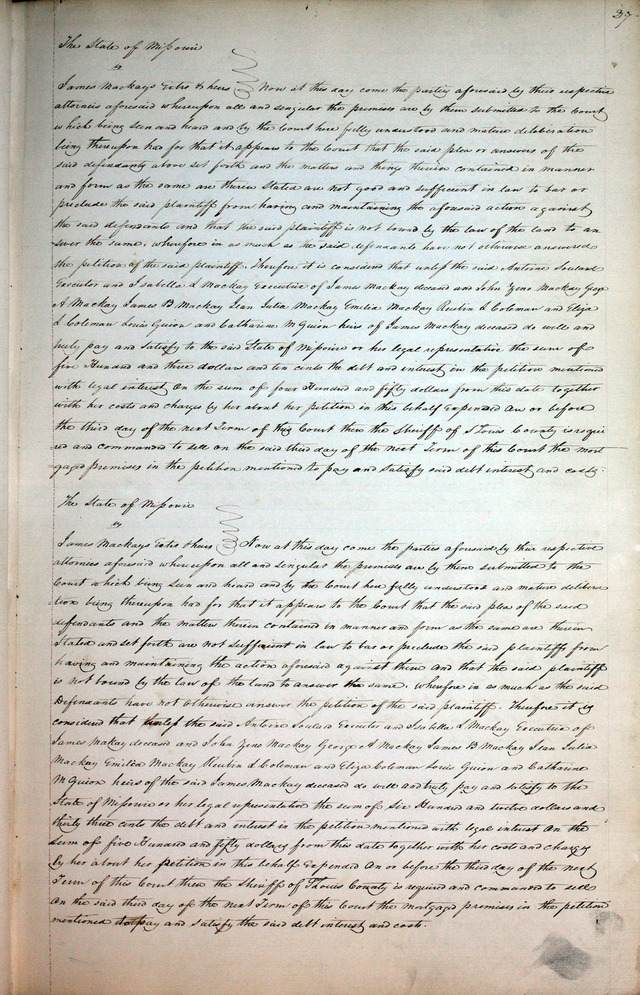 37
The State of Missouri
vs
James Mackays Extrs & heirs Now at this day come the parties aforesaid by their respective
attornies aforesaid whereupon all and singular the premises are by them submitted to the Court
which being seen and heard and by the Court here fully understood and mature deliberation
being thereupon had for that it appears to the Court that the said plea or answers of the
said defendants above set forth and the matters and things therein contained in manner
and form as the same are therein Stated are not good and sufficient in law to bar or
preclude the said plaintiff from having and maintaining the aforesaid action against
the said defendants and that the said plaintiff is not bound by the law of the land to an
swer the same. wherefore in as much as the said defendants have not otherwise answered
the petition of the said plaintiff. Therefore it is considered that unless the said Antoine Soulard
Executor and Isabella L Mackay Executrix of James Mackay deceased and John Zeno Mackay George
A Mackay James B Mackay Jean Julia Mackay Emilia Mackay Reubin L Coleman and Eliza
L Coleman Louis Guion and Catharine M Guion heirs of James Mackay deceased do well and
truly pay and satisfy to the said State of Missouri or her legal representative the sum of
five Hundred and three dollars and ten cents the debt and interest in the petition mentioned
with legal interest On the sum of four Hundred and fifty dollars from this date together
with her costs and charges by her about her petition in this behalf Expended On or before
the third day of the next Term of this Court then the Sheriff of St Louis County is requir
ed and commanded to sell on the said third day of the next Term of this Court the mort
gaged premises in the petition mentioned to pay and satisfy said debt interest and costs.
The State of Missouri
vs
James Mackays Extrs & heirs Now at this day come the parties aforesaid by their respective
attornies aforesaid whereupon all and singular the premises are by them submitted to the
Court which being seen and heard and by the Court here fully understood and mature delibera
tion being thereupon had for that it appears to the Court that the said plea of the said
defendants and the matters therein contained in manner and form as the same are therein
Stated and set forth are not sufficient in law to bar or preclude the said plaintiff from
having and maintaining the action aforesaid against them and that the said plaintiff
is not bound by the law of the land to answer the same. wherefore in as much as the said
Defendants have not Otherwise answer the petition of the said plaintiff. Therefore it is
considered that unless the said Antoine Soulard Executor and Isabella L Mackay Executrix of
James Mackay deceased and John Zeno Mackay George A Mackay James B Mackay Jean Julia
Mackay Emilia Mackay Reubin L Coleman and Eliza Coleman Louis Guion and Catharine
M Guion heirs of the said James Mackay deceased do well and truly pay and satisfy to the
State of Missouri or her legal representative the sum of Six Hundred and twelve dollars and
thirty three cents the debt and interest in the petition mentioned with legal interest on the
sum of five Hundred and fifty dollars from this date together with her costs and charges
by her about her petition in this behalf Expended On or before the third day of the next
Term of this Court then the Sheriff of St Louis County is required and commanded to sell
On the said third day of the next Term of this Court the mortgaged premises in the petition
mentioned to pay and satisfy the said debt interest and costs.